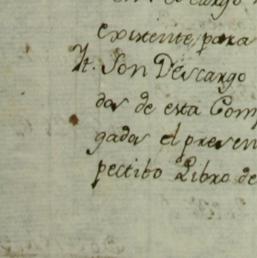 existente, para
Yt. Son Descargo
das de esta Comp
gadas el presen
pectibo Libro de